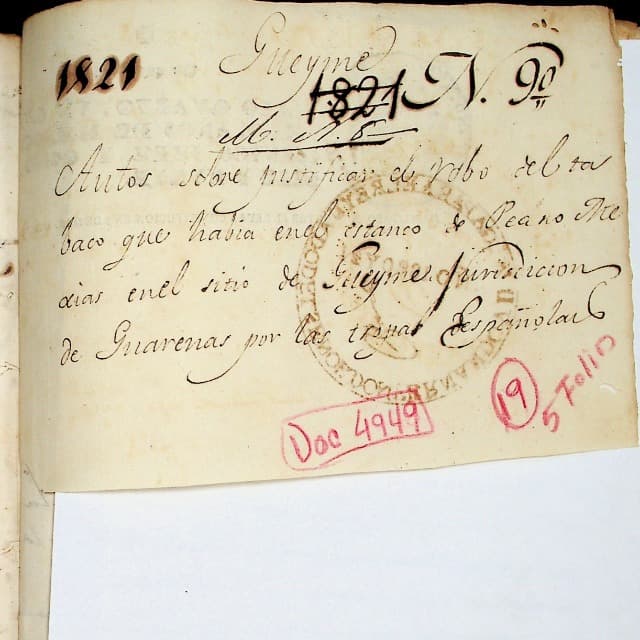 Gueyme
1821
1821 N. 90
M. N. 6
Autos sobre justificar el robo del ta
baco que había en el estanco de Me
xias en el sitio de Gueyme Jurisdicion
de Guarenas por las tropas Españolas
Doc 4949
19
5 Folio